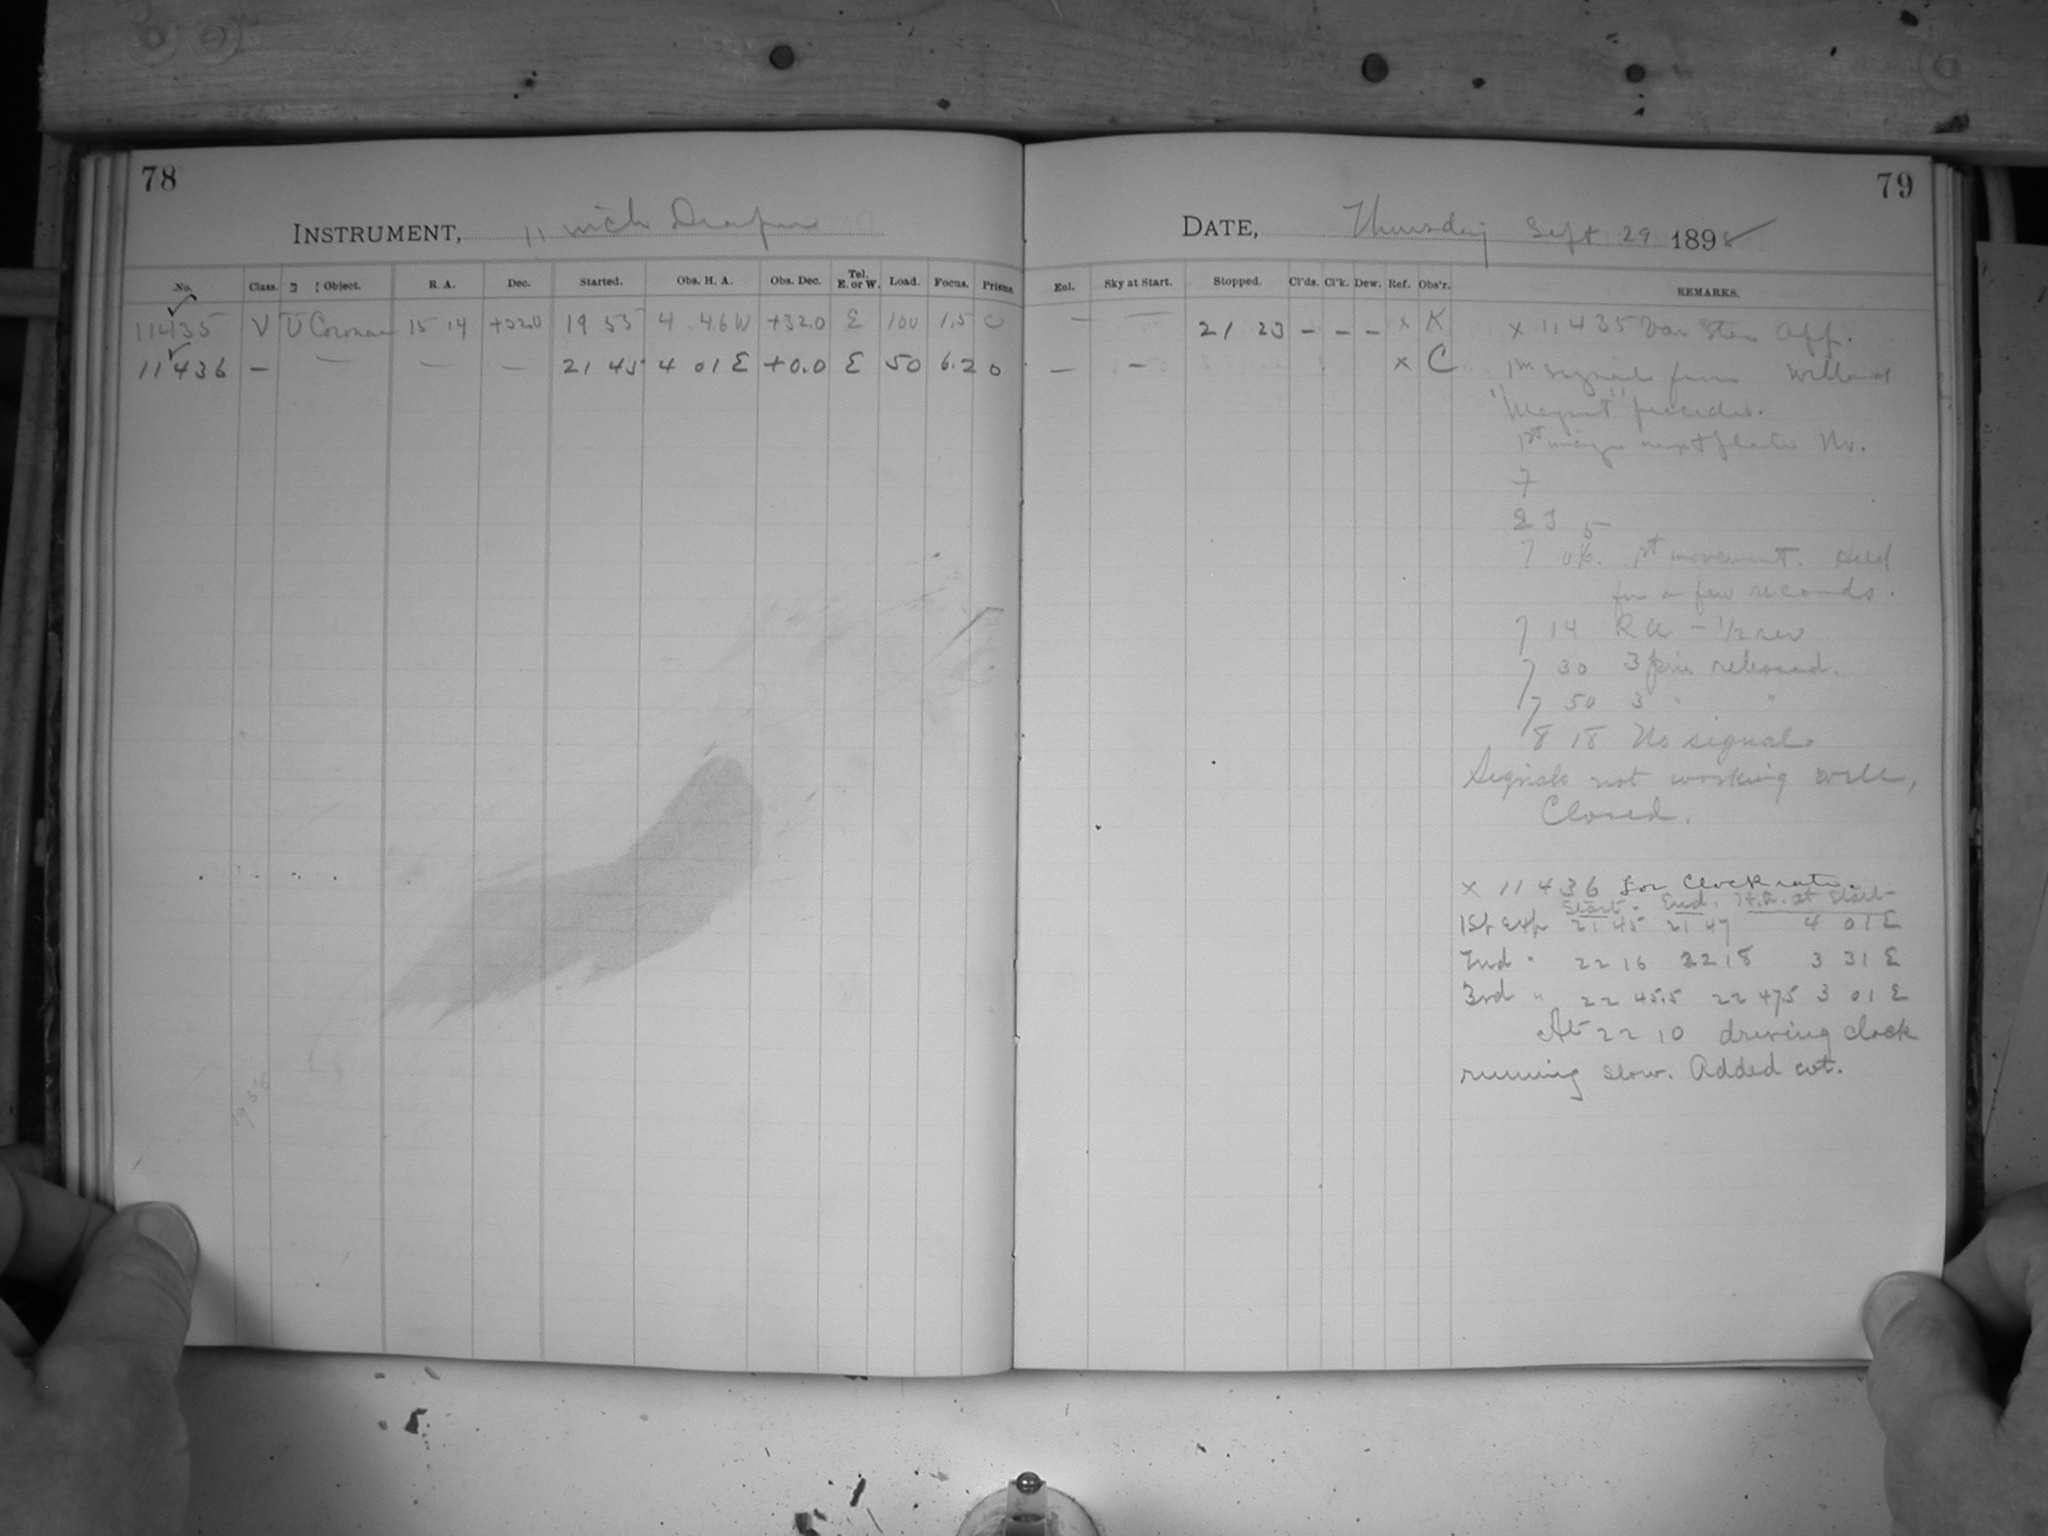 78
INSTRUMENT, 11 inch Draper
No. Class. Object. R. A. Dec. Started. Obs. H. A. Obs. Dec. Tel. E. or W. Load. Focus. Prisms.
11435 V U Coronae 15 14 +32.0 19 55 4 46 W +32.0 E 100 1.5 0
11436 — — — — 21 45 4 01 E +0.0 E 50 6.2 0
79
DATE, Thursday Sept 29 1898
Enl. Sky at Start. Stopped. Cl'ds. Cl'k. Dew. Ref. Obs'r. REMARKS.
— — 21 23 – – – x K x 11435 Var Star App.
— — x C 1m signals from Willard
"Magnet" precedes.
1st image next plate No.
7
7 06. 1st movement. Held
for a few seconds.
7 14 RA – 1/2 rev
7 30 3 pin released.
7 50 3 " "
8 18 No signal.
Signals not working well,
Closed.
x 11436 For Clock rate.
Start. End. H.A. at Start
1st exp 21 45 21 47 4 01 E
2nd " 22 16 22 18 3 31 E
3rd " 22 45.5 22 47.5 3 01 E
At 22 10 driving clock
running slow. Added wt.